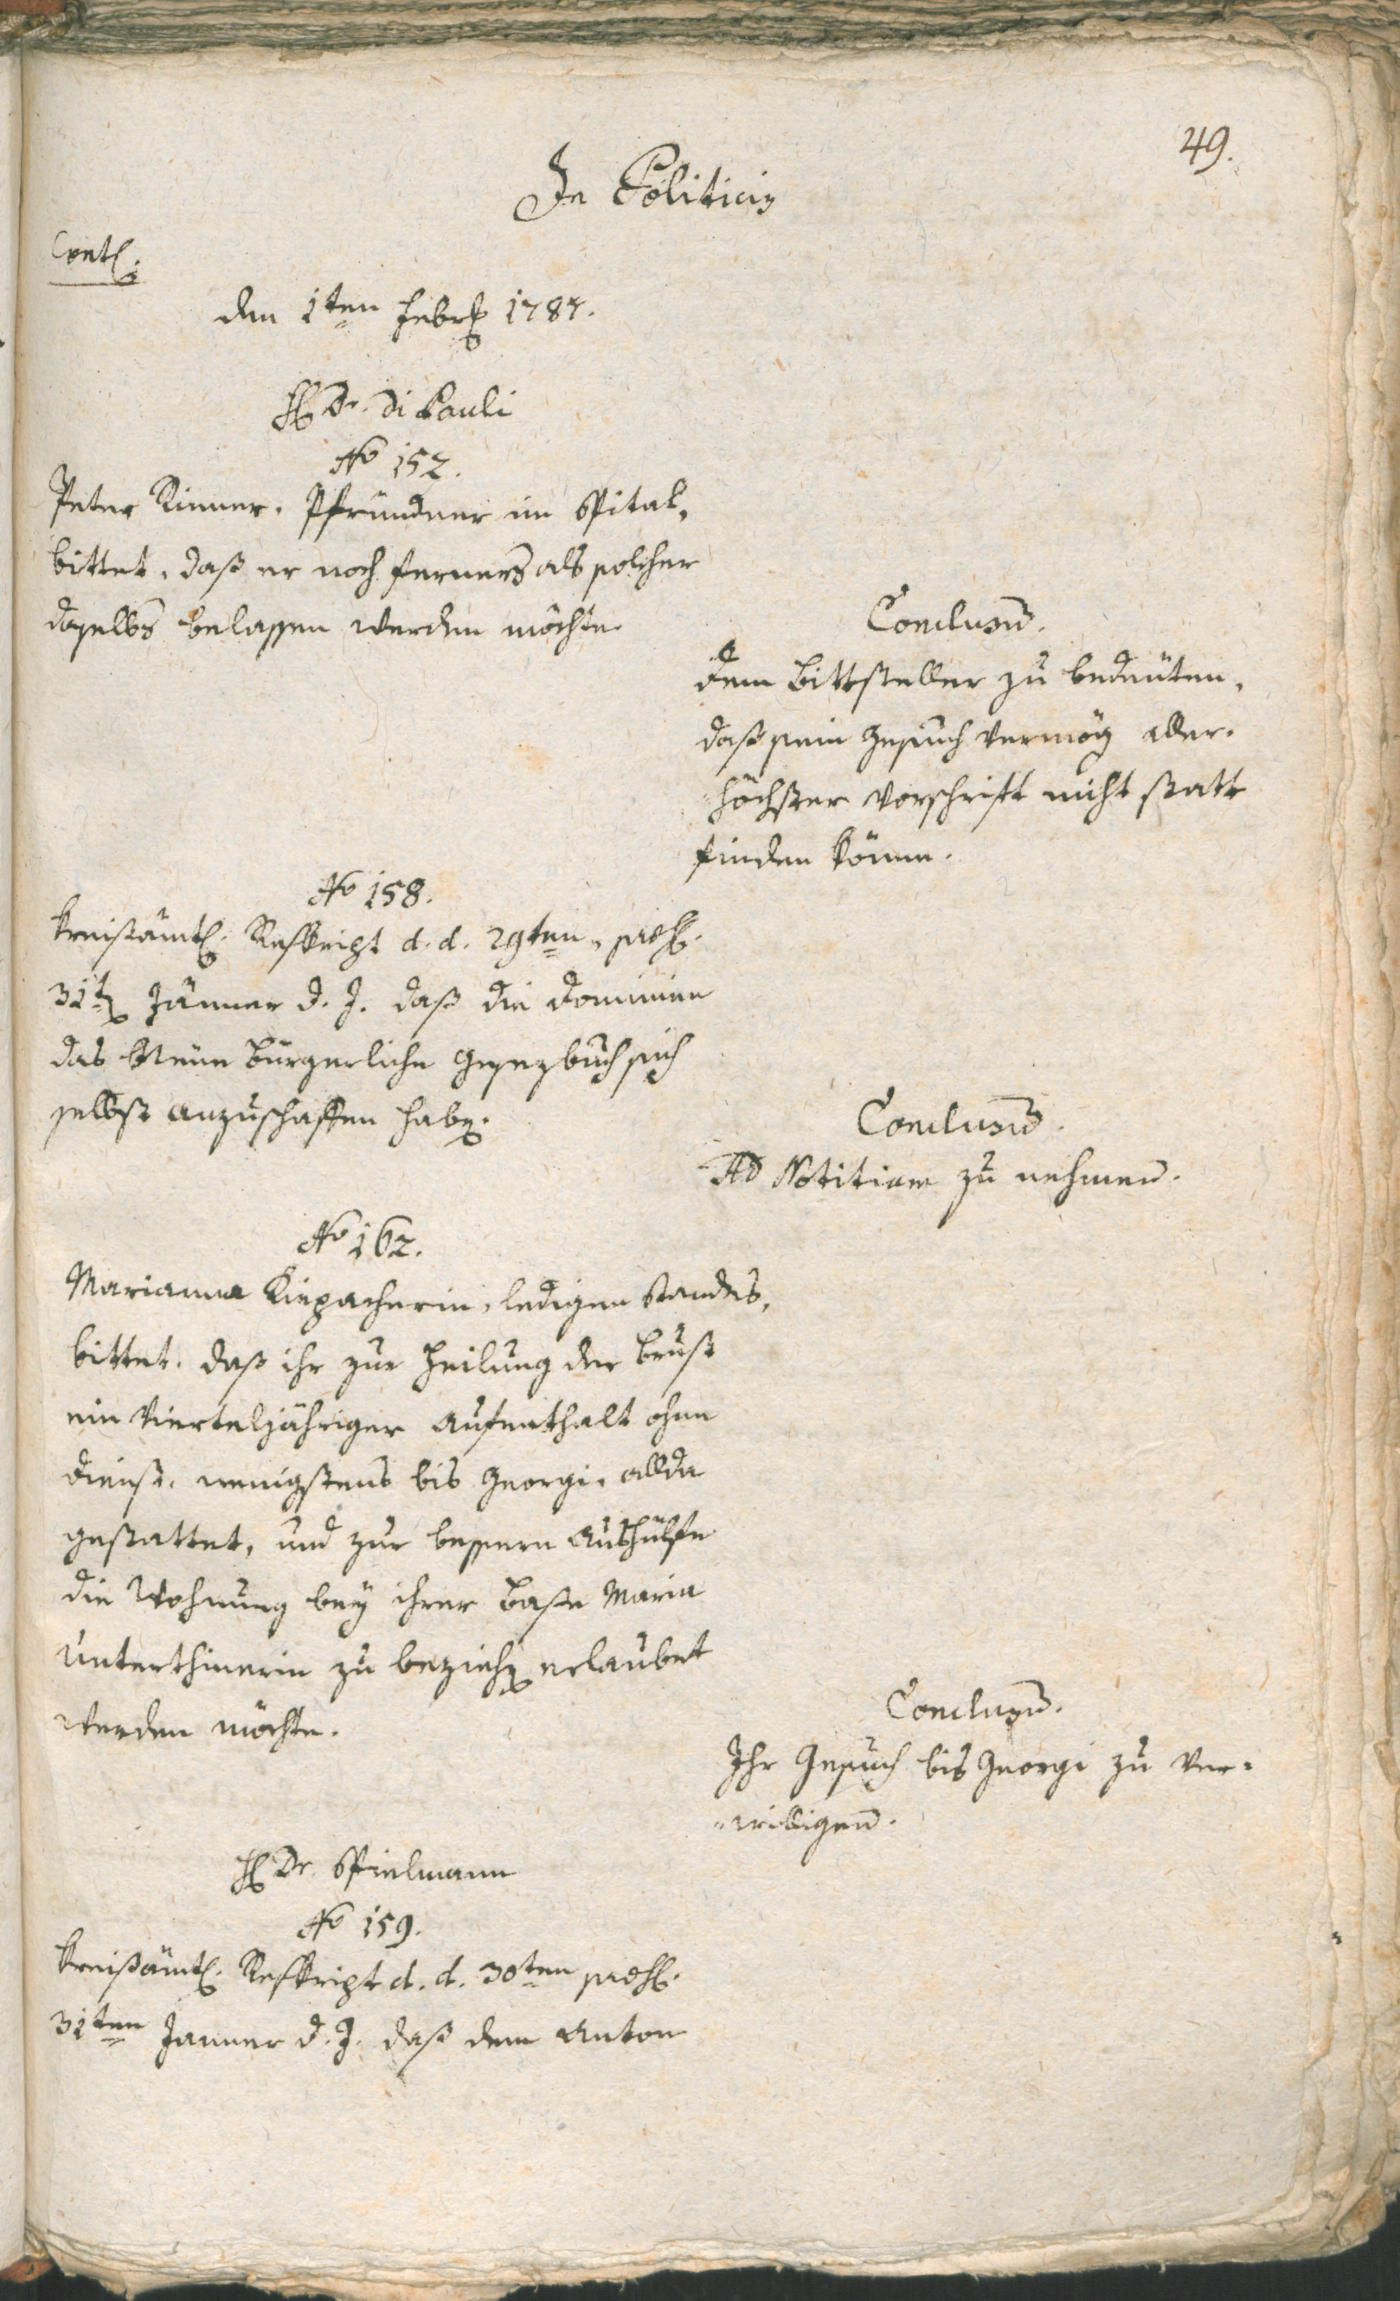 49.
In Politicis
Contl.
den 1ten Febr 1787.
H Dr. Di Pauli
No 152.
Peter Rinner, Pfründner im Spital,
bittet, daß er noch ferners als solcher
daselbs belassen werden möchte.
Conclusum.
Dem Bittsteller zu bedeuten,
daß sein Gesuch vermög aller-
höchster Vorschrift nicht statt
finden könne.
No 158.
Kreißämtl. Reskript d. d. 29ten, praes.
31t Jänner d. J. daß die Dominien
das Neue Bürgerliche Gesezbuch sich
selbst anzuschaffen haben.
Conclusum.
Ad Notitiam zu nehmen.
No 162.
Marianna Kinpacherin, ledigen Standes,
bittet, daß ihr zur Heilung der Brust
ein Vierteljähriger Aufenthalt ohne
Dienst, wenigstens bis Georgi, allda
gestattet, und zur bessern Aushülfe
die Wohnung bey ihrer Base Maria
Unterthinerin zu beziehen erlaubet
werden möchte.
Conclusum.
Ihr Gesuch bis Georgi zu ver-
willigen.
H Dr. Spielmann
No 159.
Kreißämtl. Reskript d. d. 30ten praes.
31ten Janner d. J. daß dem Anton